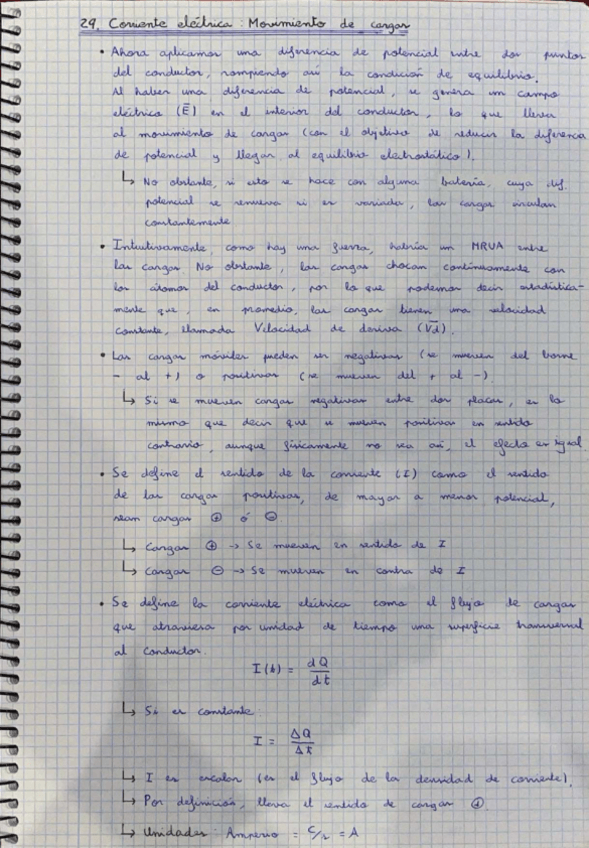 29. Corriente eléctrica: Movimiento de cargas
• Ahora aplicamos una diferencia de potencial entre dos puntos
del conductor, rompiendo así la condición de equilibrio.
Al haber una diferencia de potencial, se genera un campo
eléctrico (E) en el interior del conductor, lo que lleva
al movimiento de cargas (con el objetivo de reducir la diferencia
de potencial y llegar al equilibrio electrostático).
↳ No obstante, si esto se hace con alguna batería, cuya dif.
potencial se renueva si es variada, las cargas circulan
constantemente
• Intuitivamente, como hay una fuerza, habría un MRUA entre
las cargas. No obstante, las cargas chocan continuamente con
los átomos del conductor, por lo que podemos decir estadística-
mente que, en promedio, las cargas tienen una velocidad
constante, llamada Velocidad de deriva (Vd).
• Las cargas móviles pueden ser negativas (se mueven del borne
- al +) o positivas (se mueven del + al -).
↳ Si se mueven cargas negativas entre dos placas, es lo
mismo que decir que se mueven positivas en sentido
contrario, aunque físicamente no sea así, el efecto es igual
• Se define el sentido de la corriente (I) como el sentido
de las cargas positivas, de mayor a menor potencial,
sean cargas ⊕ ó ⊖
↳ Cargas ⊕ → Se mueven en sentido de I
↳ Cargas ⊖ → Se mueven en contra de I
• Se define la corriente eléctrica como el flujo de cargas
que atraviesa por unidad de tiempo una superficie transversal
al conductor.
I(t) = dQ/dt
↳ Si es constante:
I = ΔQ/Δt
↳ I es escalar (es el flujo de la densidad de corriente).
↳ Por definición, lleva el sentido de cargas ⊕.
↳ Unidades: Amperio = C/s = A